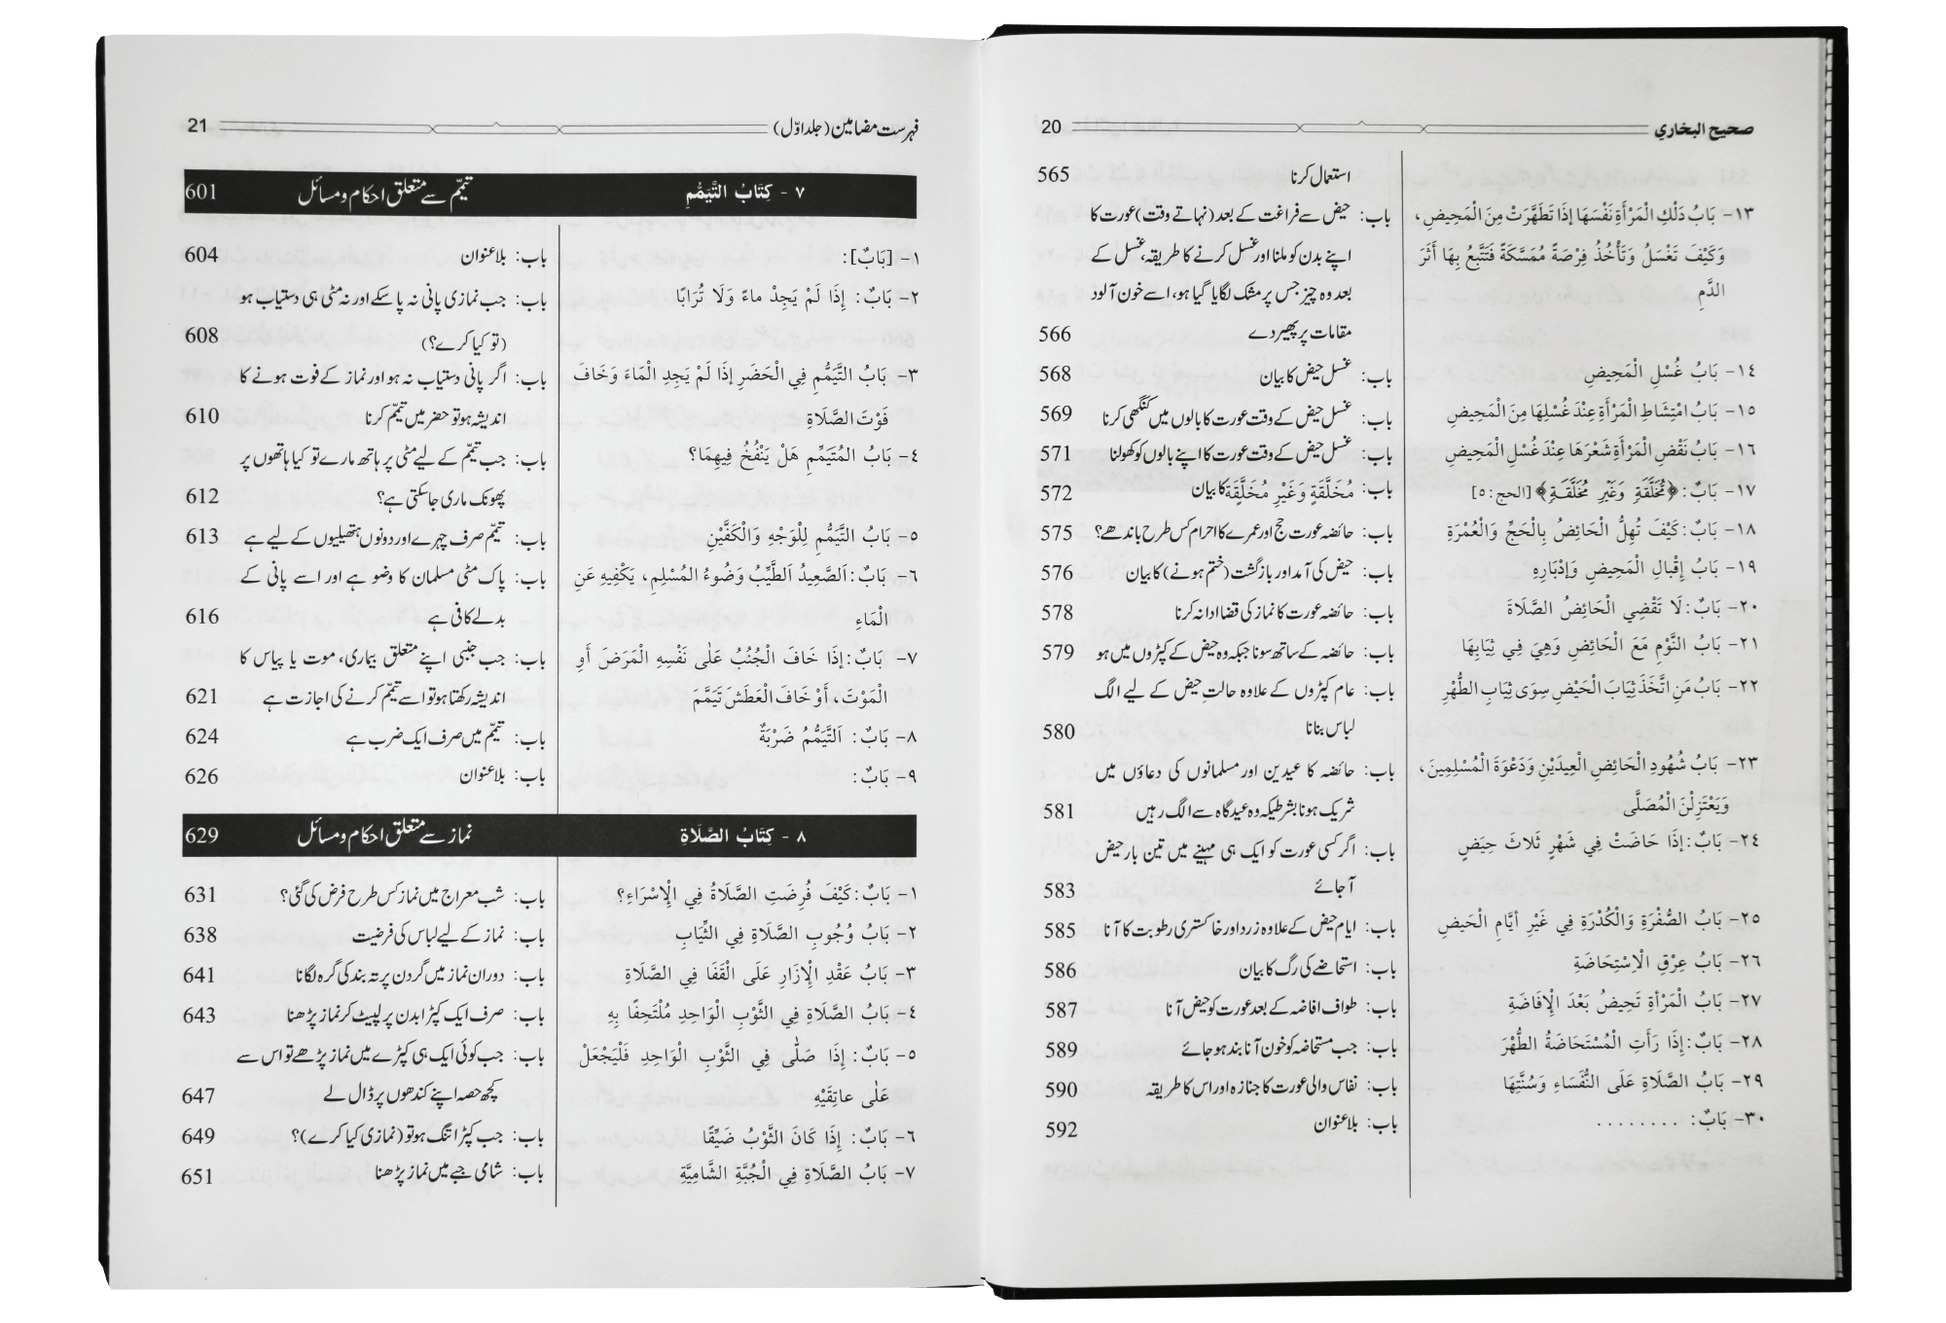 صحيح البخاري 20
استعمال کرنا 565
١٣- بَابُ دَلْكِ الْمَرْأَةِ نَفْسَهَا إِذَا تَطَهَّرَتْ مِنَ الْمَحِيضِ، باب: حیض سے فراغت کے بعد (نہاتے وقت) عورت کا
وَكَيْفَ تَغْسَلُ وَتَأْخُذُ فِرْصَةً مُمَسَّكَةً فَتَتَّبِعُ بِهَا أَثَرَ اپنے بدن کو ملنا اور غسل کرنے کا طریقہ، غسل کے
الدَّمِ بعد وہ چیز جس پر مشک لگایا گیا ہو، اسے خون آلود
مقامات پر پھیر دے 566
١٤- بَابُ غُسْلِ الْمَحِيضِ باب: غسل حیض کا بیان 568
١٥- بَابُ امْتِشَاطِ الْمَرْأَةِ عِنْدَ غُسْلِهَا مِنَ الْمَحِيضِ باب: غسل حیض کے وقت عورت کا بالوں میں کنگھی کرنا 569
١٦- بَابُ نَقْضِ الْمَرْأَةِ شَعْرَهَا عِنْدَ غُسْلِ الْمَحِيضِ باب: غسل حیض کے وقت عورت کا اپنے بالوں کو کھولنا 571
١٧- بَابٌ: ﴿مُخَلَّقَةٍ وَغَيْرِ مُخَلَّقَةٍ﴾ [الحج: ٥] باب: مُخَلَّقَةٍ وَغَيْرِ مُخَلَّقَةٍ کا بیان 572
١٨- بَابٌ: كَيْفَ تُهِلُّ الْحَائِضُ بِالْحَجِّ وَالْعُمْرَةِ باب: حائضہ عورت حج اور عمرے کا احرام کس طرح باندھے؟ 575
١٩- بَابُ إِقْبَالِ الْمَحِيضِ وَإِدْبَارِهِ باب: حیض کی آمد اور بازگشت (ختم ہونے) کا بیان 576
٢٠- بَابٌ: لَا تَقْضِي الْحَائِضُ الصَّلَاةَ باب: حائضہ عورت کا نماز کی قضا ادا نہ کرنا 578
٢١- بَابُ النَّوْمِ مَعَ الْحَائِضِ وَهِيَ فِي ثِيَابِهَا باب: حائضہ کے ساتھ سونا جبکہ وہ حیض کے کپڑوں میں ہو 579
٢٢- بَابُ مَنِ اتَّخَذَ ثِيَابَ الْحَيْضِ سِوَى ثِيَابِ الطُّهْرِ باب: عام کپڑوں کے علاوہ حالتِ حیض کے لیے الگ
لباس بنانا 580
٢٣- بَابُ شُهُودِ الْحَائِضِ الْعِيدَيْنِ وَدَعْوَةَ الْمُسْلِمِينَ، باب: حائضہ کا عیدین اور مسلمانوں کی دعاؤں میں
وَيَعْتَزِلْنَ الْمُصَلَّى شریک ہونا بشرطیکہ وہ عیدگاہ سے الگ رہیں 581
٢٤- بَابٌ: إِذَا حَاضَتْ فِي شَهْرٍ ثَلَاثَ حِيَضٍ باب: اگر کسی عورت کو ایک ہی مہینے میں تین بار حیض
آ جائے 583
٢٥- بَابُ الصُّفْرَةِ وَالْكُدْرَةِ فِي غَيْرِ أَيَّامِ الْحَيضِ باب: ایام حیض کے علاوہ زرد اور خاکستری رطوبت کا آنا 585
٢٦- بَابُ عِرْقِ الْاِسْتِحَاضَةِ باب: استحاضے کی رگ کا بیان 586
٢٧- بَابُ الْمَرْأَةِ تَحِيضُ بَعْدَ الْإِفَاضَةِ باب: طواف افاضہ کے بعد عورت کو حیض آنا 587
٢٨- بَابٌ: إِذَا رَأَتِ الْمُسْتَحَاضَةُ الطُّهْرَ باب: جب مستحاضہ کو خون آنا بند ہو جائے 589
٢٩- بَابُ الصَّلَاةِ عَلَى النُّفَسَاءِ وَسُنَّتِهَا باب: نفاس والی عورت کا جنازہ اور اس کا طریقہ 590
٣٠- بَابٌ: ........ باب: بلا عنوان 592
فہرست مضامین (جلد اوّل) 21
٧ - كِتَابُ التَّيَمُّمِ تیمّم سے متعلق احکام و مسائل 601
١- [بَابٌ]: باب: بلا عنوان 604
٢- بَابٌ: إِذَا لَمْ يَجِدْ مَاءً وَلَا تُرَابًا باب: جب نمازی پانی نہ پا سکے اور نہ مٹی ہی دستیاب ہو
(تو کیا کرے؟) 608
٣- بَابُ التَّيَمُّمِ فِي الْحَضَرِ إِذَا لَمْ يَجِدِ الْمَاءَ وَخَافَ باب: اگر پانی دستیاب نہ ہو اور نماز کے فوت ہونے کا
فَوْتَ الصَّلَاةِ اندیشہ ہو تو حضر میں تیمّم کرنا 610
٤- بَابُ الْمُتَيَمِّمِ هَلْ يَنْفُخُ فِيهِمَا؟ باب: جب تیمّم کے لیے مٹی پر ہاتھ مارے تو کیا ہاتھوں پر
پھونک ماری جا سکتی ہے؟ 612
٥- بَابُ التَّيَمُّمِ لِلْوَجْهِ وَالْكَفَّيْنِ باب: تیمّم صرف چہرے اور دونوں ہتھیلیوں کے لیے ہے 613
٦- بَابٌ: اَلصَّعِيدُ الطَّيِّبُ وَضُوءُ الْمُسْلِمِ، يَكْفِيهِ عَنِ باب: پاک مٹی مسلمان کا وضو ہے اور اسے پانی کے
الْمَاءِ بدلے کافی ہے 616
٧- بَابٌ: إِذَا خَافَ الْجُنُبُ عَلٰى نَفْسِهِ الْمَرَضَ أَوِ باب: جب جنبی اپنے متعلق بیماری، موت یا پیاس کا
الْمَوْتَ، أَوْ خَافَ الْعَطَشَ تَيَمَّمَ اندیشہ رکھتا ہو تو اسے تیمّم کرنے کی اجازت ہے 621
٨- بَابٌ: اَلتَّيَمُّمُ ضَرْبَةٌ باب: تیمّم میں صرف ایک ضرب ہے 624
٩- بَابٌ: باب: بلا عنوان 626
٨ - كِتَابُ الصَّلَاةِ نماز سے متعلق احکام و مسائل 629
١- بَابٌ: كَيْفَ فُرِضَتِ الصَّلَاةُ فِي الْإِسْرَاءِ؟ باب: شب معراج میں نماز کس طرح فرض کی گئی؟ 631
٢- بَابُ وُجُوبِ الصَّلَاةِ فِي الثِّيَابِ باب: نماز کے لیے لباس کی فرضیت 638
٣- بَابُ عَقْدِ الْإِزَارِ عَلَى الْقَفَا فِي الصَّلَاةِ باب: دوران نماز میں گردن پر تہ بند کی گرہ لگانا 641
٤- بَابُ الصَّلَاةِ فِي الثَّوْبِ الْوَاحِدِ مُلْتَحِفًا بِهِ باب: صرف ایک کپڑا بدن پر لپیٹ کر نماز پڑھنا 643
٥- بَابٌ: إِذَا صَلّٰى فِي الثَّوْبِ الْوَاحِدِ فَلْيَجْعَلْ باب: جب کوئی ایک ہی کپڑے میں نماز پڑھے تو اس سے
عَلٰى عَاتِقَيْهِ کچھ حصہ اپنے کندھوں پر ڈال لے 647
٦- بَابٌ: إِذَا كَانَ الثَّوْبُ ضَيِّقًا باب: جب کپڑا تنگ ہو تو (نمازی کیا کرے)؟ 649
٧- بَابُ الصَّلَاةِ فِي الْجُبَّةِ الشَّامِيَّةِ باب: شامی جبے میں نماز پڑھنا 651